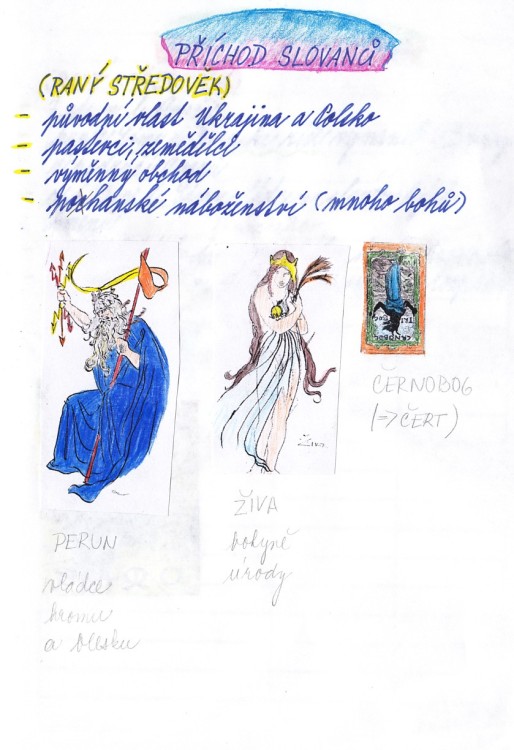 PŘÍCHOD SLOVANŮ
(RANÝ STŘEDOVĚK)
- původní vlast Ukrajina a Polsko
- pastevci, zemědělci
- výměnný obchod
- pohanské náboženství (mnoho bohů)
Živa
ČERNOBOG
ČERNOBOG
(=> ČERT)
ŽIVA
bohyně
úrody
PERUN
vládce
hromu
a blesku